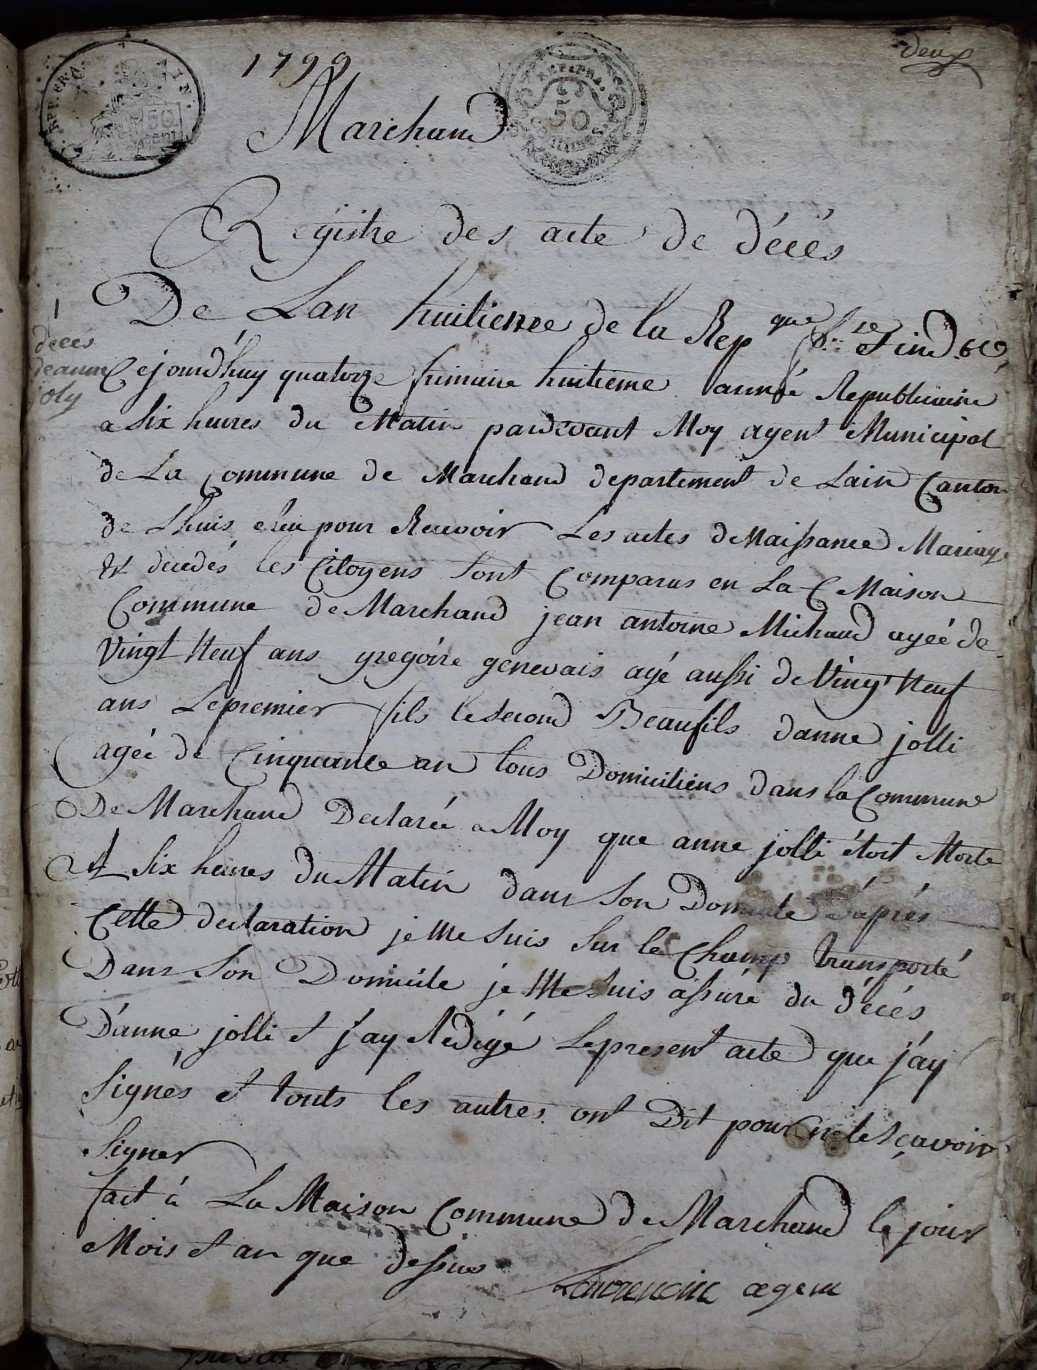 deux
1799
REP. FRA.
50
REP. FRA.
50
CENTIMES
Marchand
Registre des acte de décés
De Lan huitieme de la Rep que f.se et ind
1
déces
deanne
joly
Cejourdhuy quatorze frimaire huitieme année Republicaine
a Six heures du Matin pardevant Moy agent Municipal
de La Commune de Marchand departement de Lain Canton
de Lhuis eleu pour Recevoir Les actes de Naissance Mariage
et décedés les Citoyens Sont Comparus en La Maison
Commune de Marchand jean antoine Michaud ageé de
Vingt Neuf ans gregóire genevais agé aussi de Vingt Neuf
ans Lepremier fils le second Beaufils danne jolli
agée de Cinquante an tous Domiciliens dans la Commune
De Marchand Declarée a Moy que anne jolli étoit Morte
a Six heures du Matin dans Son Domicile d'áprés
Cette declaration je Me Suis Sur le Champ transporté
Dans Són Domicile je Me Suis assuré du décés
D'anne jolli et j'ay Redigé Lepresent acte que j'ay
Signés et touts les autres ont Dit pour Ne le Sçavoir
Signer
fait à La Maison Commune de Marchand le jour
Mois et an que dessus
Laurencin agent